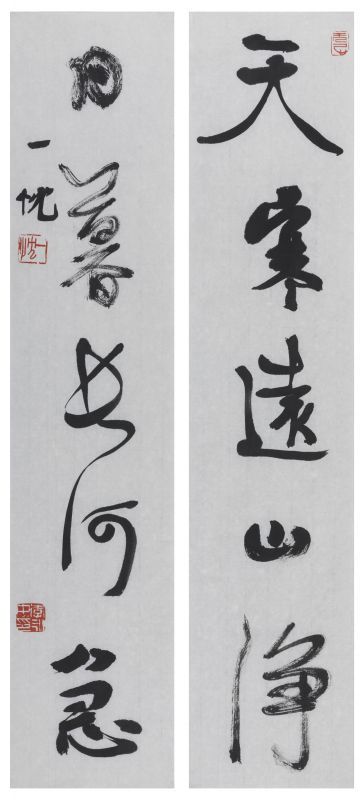 天寒遠山淨
日暮長河急
一忱